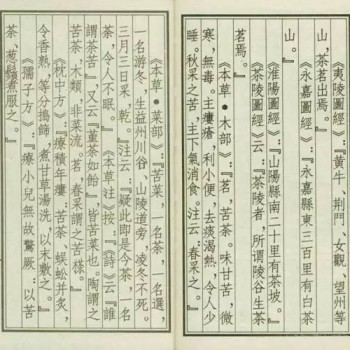 《夷陵圖經》：『黃牛、荊門、女觀、望州等
山，茶茗出焉。』
《永嘉圖經》：『永嘉縣東三百里有白茶
山。』
《淮陽圖經》：『山陽縣南二十里有茶坡。』
《茶陵圖經》云：『茶陵者，所謂陵谷生茶
茗焉。』
《本草•木部》：『茗，苦茶。味甘苦，微
寒，無毒。主瘻瘡，利小便，去痰渴熱，令人少
睡。秋采之苦，主下氣消食。注云：『春采之。』
《本草•菜部》：『苦菜，一名茶，一名選，
一名游冬，生益州川谷、山陵道旁，凌冬不死。
三月三日采，乾。』注云：『疑此即是今茶，一名
茶，令人不眠。』《本草注》：按：《詩》云『誰
謂茶苦』，又云『堇茶如飴』，皆苦菜也。陶謂之
苦茶，木類，非菜流。茗，春采謂之苦。』
《枕中方》：『療積年瘻：苦茶、蜈蚣並炙，
令香熟，等分，搗篩，煮甘草湯洗，以末敷之。』
《孺子方》：『療小兒無故驚厥：以苦
茶、蔥鬚煮服之。』